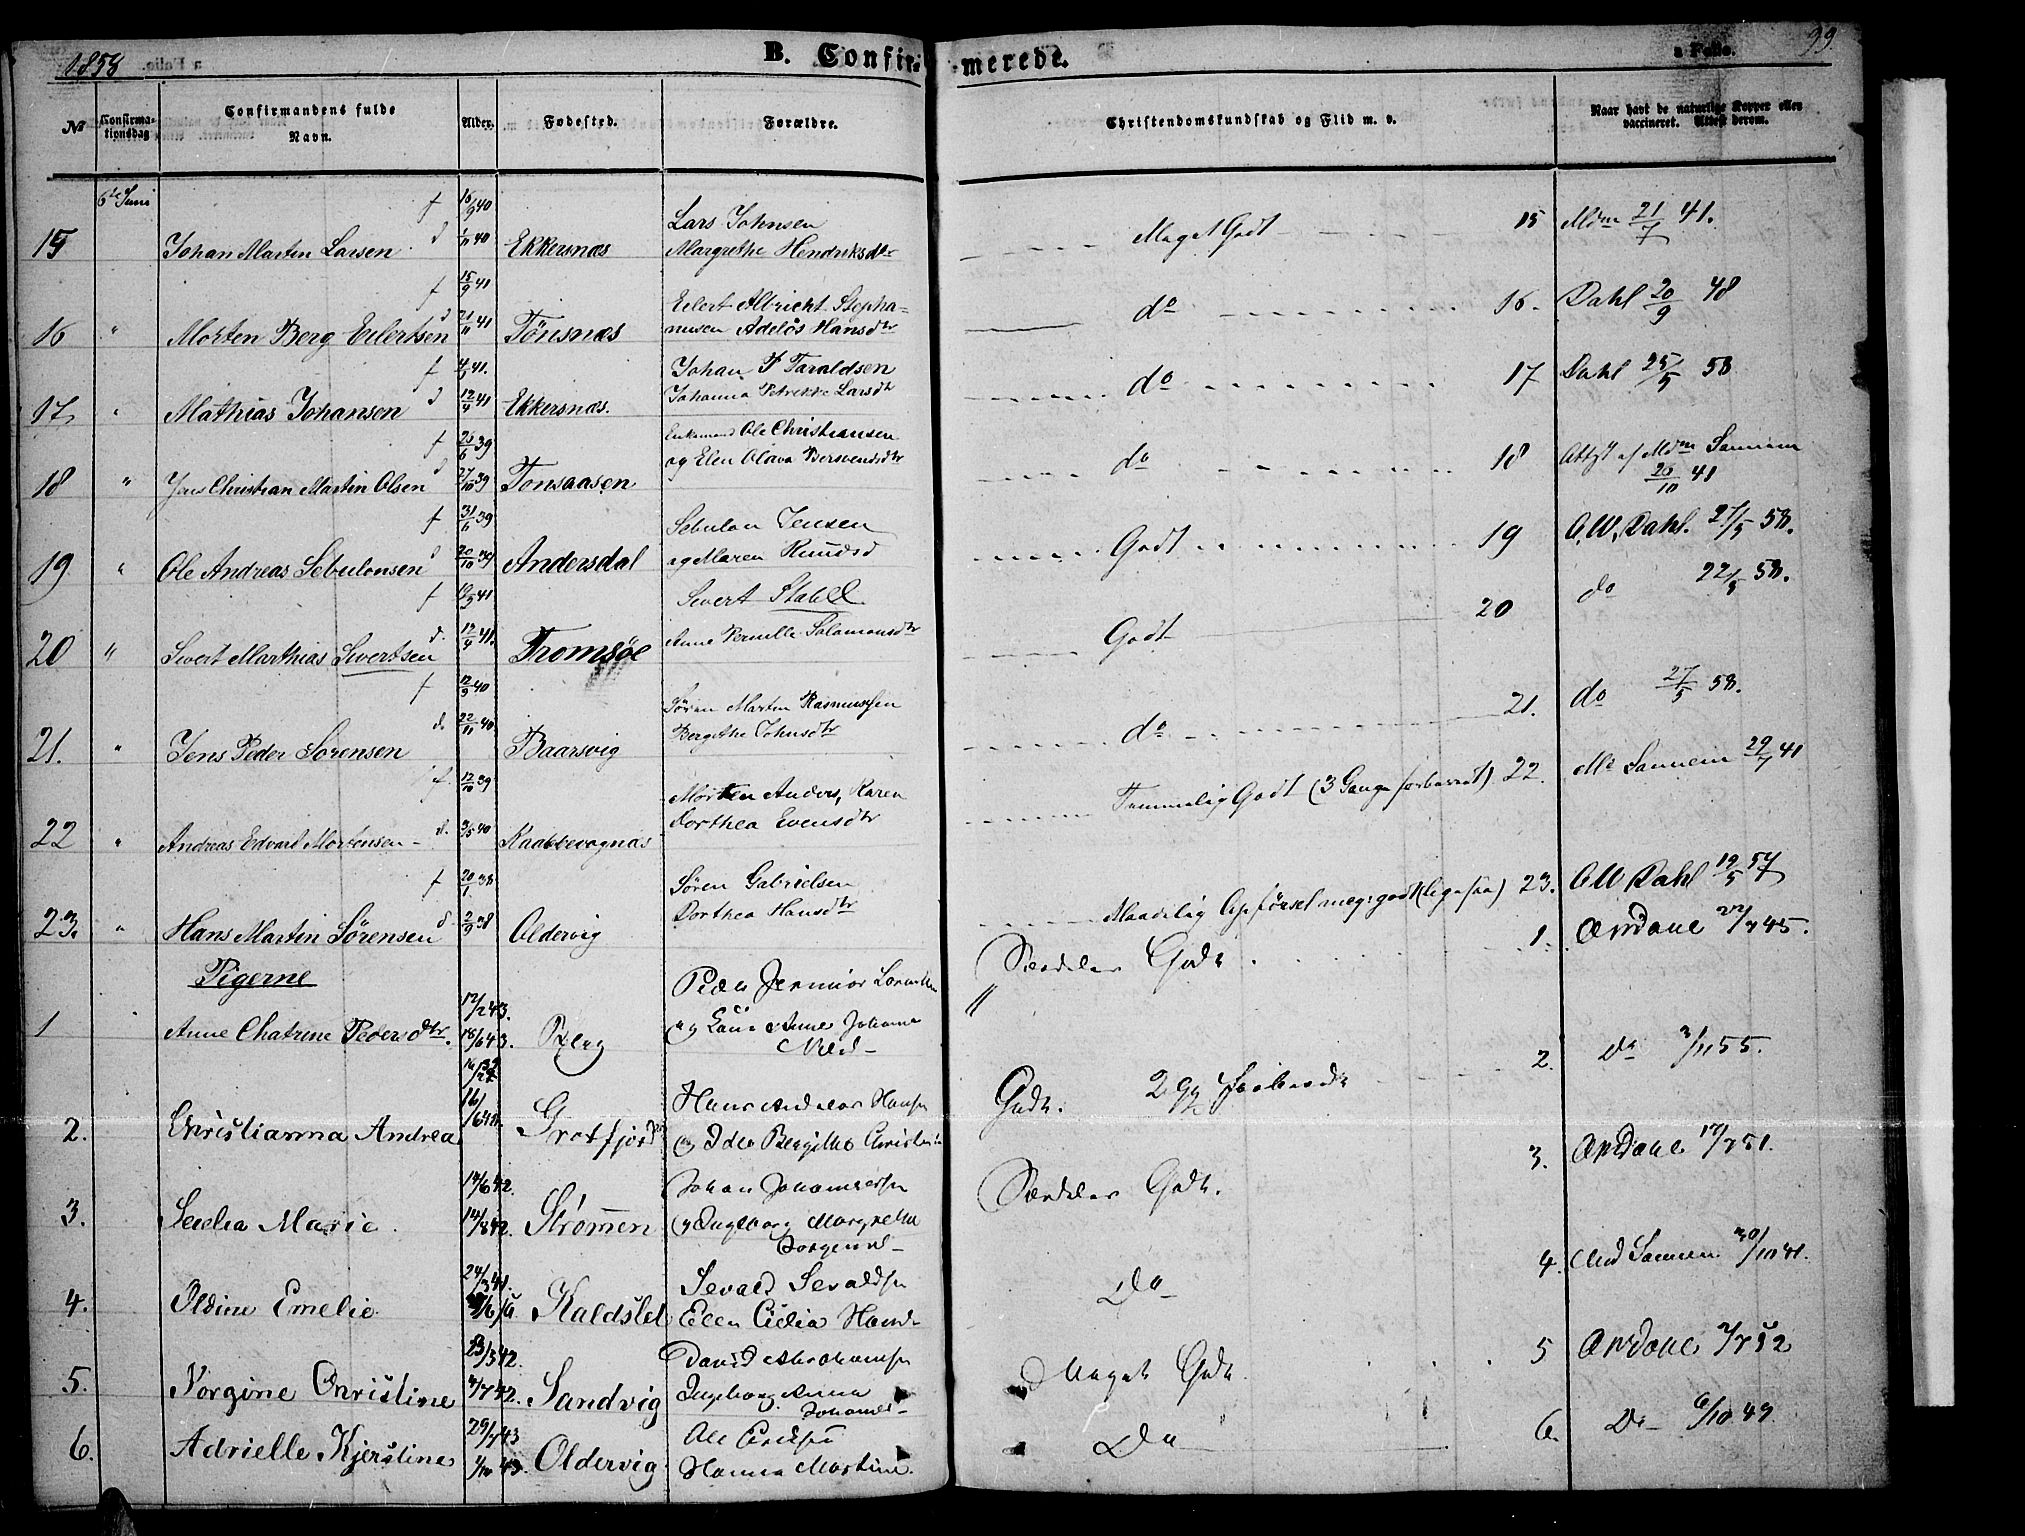 1858
B. Confir-merede.
a Folio.
99
No
Confirma-tionsdag
Confirmandens fulde Navn.
Alder.
Fødested.
Forældre.
Christendomskundskab og Flid m. v.
Naar havt de naturlige Kopper eller vaccineret. Attest derom.
6te Juni
15 Johan Martin Larsen f 16/9 40 d 1/11 40 Ekkersnæs Lars Johnsen Margrethe Hendriksdtr Meget Godt 15 Mdm 21/7 41.
16 " Morten Berg Eilertsen f 15/9 41 d 21/11 41 Tönsnæs Eilert Albricht Stepha-nusen Adelös Hansdtr do 16. Dahl 20/9 48
17 " Mathias Johansen f 41. d 12/4 41 Ekkersnæs. Johan P Taraldsen Johanna Petrikke Larsdtr do 17 Dahl 25/5 58
18 " Jens Christian Martin Olsen f 26/6 39 d 27/10 39 Tonsaasen Enkemand Ole Christiansen og Elen Olava Bersvendsdtr do 18 Attest af Mdm Sannem 20/10 41
19 " Ole Andreas Sebulonsen f 31/6 39 d 20/10 39 Andersdal Sebulon Jensen og Maren Knudsd Godt 19 O.W. Dahl. 27/5 58.
20 " Sivert Marthias Sivertsen f 41 d. 12/4 41. Tromsöe Sivert Stabel Anne Pernille Salamonsdtr Godt 20 do 22/5 58.
21. " Jens Peder Sørensen f 12/9 40 d. 22/11 40 Baarsvig Søren Martin Rasmussen Bergithe Johnsdtr do 21. do 27/5 58.
22 " Andreas Edvart Mortensen f. 12/10 39 d. 3/5 40 Kaabbevognæs Morten Anders, Karen Dorthea Evensdtr Temmelig Godt (3 Gange forberedt) 22. Md Sannem 29/7 41
23. " Hans Martin Sørensen f 20/1 38 d 2/9 38 Oldervig Søren Gabrielsen Dorthea Hansdtr Maadelig Opførsel meg: godt 23. OW Dahl 19/5 57
Pigerne
1 Anne Chatrine Pedersdtr. 12/2 43. 18/6 43. Berg Peder Jer og Anne Johanna Særdeles Godt. 1. 45.
2. Christianna Andrea 16/6 Grotfjord Hans Andreas Hansen og Ida Bergitte Godt. 2 Gg forberedt 2. Do 55.
3. Secelia Marie. 14/8 42. Strømmen Johan Johannessen og Ingeborg Margrethe Jørgensd Særdeles Godt. 3. 17/7 51.
4. Oldine Emelie 24/3 41. Kaldslet Sevald Sevaldsen Ellen Cicilia Hansd Do 4. Md Sannem 30/10 41.
5. Norgine Christine 23/3 42. 42. Sandvig David Abrahamsen Ingeborg Anna Johannesd Meget Godt. 5 52
6. Adrielle Kjerstine 29/7 43 1/10 43. Oldervig. Ole Eriksen Hanna Martine. Do 6. Do 6/10 49